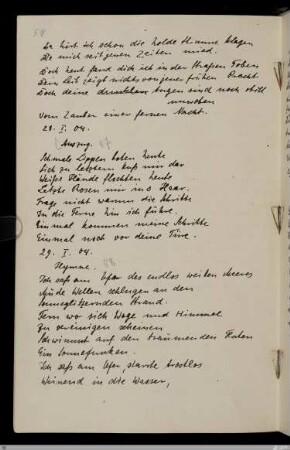 Da hört ich schon die holde Stimme klagen
Die mich seit jenen Zeiten mied.
Doch heut fand dich ich in der Straßen Toben
Dein Leid zeigt nichts von jener frühen Pracht.
Doch deine dunklen Augen sind noch still
umwoben
Vom Zauber einer fernen Nacht.
21. I. 04.
Auszug.
Schmale Lippen boten heute
Sich zu letztem Kuß mir dar
Weiße Hände flochten heute
Letzte Rosen mir ins Haar.
Frag nicht warum die Schritte
In die Ferne hin ich führe.
Einmal kommen meine Schritte
Einmal noch vor deine Türe.
29. I. 04.
Hymne.
Ich saß am Ufer des endlos weiten Meeres
Müde Wellen schlugen an den
sonneglitzernden Strand.
Fern wo sich Woge und Himmel
Zu vereinigen scheinen
Schwimmt auf den träumenden Fluten
Ein Sonnefunken.
Ich saß am Ufer, starrte trostlos
Weinend in die Wasser,